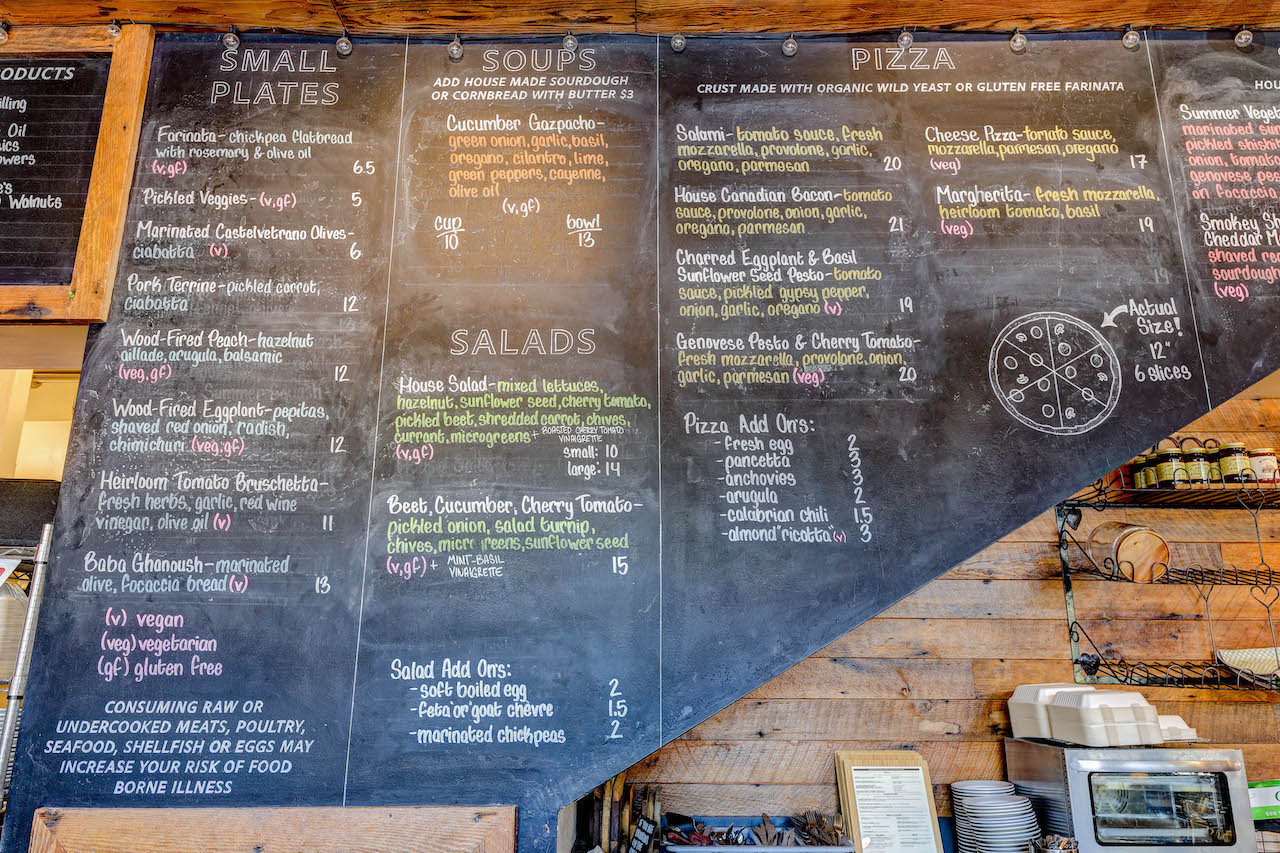 ODUCTS
illing
Oil
sics
owers
e's
Walnuts
SMALL
PLATES
Farinata-chickpea flatbread
with rosemary & olive oil
(v,gf) 6.5
Pickled Veggies-(v,gf) 5
Marinated Castelvetrano Olives-
ciabatta (v) 6
Pork Terrine-pickled carrot,
ciabatta 12
Wood-Fired Peach-hazelnut
aillade, arugula, balsamic
(veg,gf) 12
Wood-Fired Eggplant-pepitas,
shaved red onion, radish,
chimichuri (veg,gf) 12
Heirloom Tomato Bruschetta-
fresh herbs, garlic, red wine
vinegar, olive oil (v) 11
Baba Ghanoush-marinated
olive, focaccia bread (v) 13
(v) vegan
(veg) vegetarian
(gf) gluten free
CONSUMING RAW OR
UNDERCOOKED MEATS, POULTRY,
SEAFOOD, SHELLFISH OR EGGS MAY
INCREASE YOUR RISK OF FOOD
BORNE ILLNESS
SOUPS
ADD HOUSE MADE SOURDOUGH
OR CORNBREAD WITH BUTTER $3
Cucumber Gazpacho-
green onion, garlic, basil,
oregano, cilantro, lime,
green peppers, cayenne,
olive oil
(v,gf)
cup bowl
10 13
SALADS
House Salad-mixed lettuces,
hazelnut, sunflower seed, cherry tomato,
pickled beet, shredded carrot, chives,
currant, microgreens + ROASTED CHERRY TOMATO
VINAIGRETTE
(v,gf) small: 10
large: 14
Beet, Cucumber, Cherry Tomato-
pickled onion, salad turnip,
chives, microgreens, sunflower seed
(v,gf) + MINT-BASIL
VINAIGRETTE 15
Salad Add Ons:
-soft boiled egg 2
-feta "or" goat chevre 1.5
-marinated chickpeas 2
PIZZA
CRUST MADE WITH ORGANIC WILD YEAST OR GLUTEN FREE FARINATA
Salami-tomato sauce, fresh
mozzarella, provolone, garlic,
oregano, parmesan 20
House Canadian Bacon-tomato
sauce, provolone, onion, garlic,
oregano, parmesan 21
Charred Eggplant & Basil
Sunflower Seed Pesto-tomato
sauce, pickled gypsy pepper,
onion, garlic, oregano (v) 19
Genovese Pesto & Cherry Tomato-
fresh mozzarella, provolone, onion,
garlic, parmesan (veg) 20
Pizza Add Ons:
-fresh egg 2
-pancetta 3
-anchovies 3
-arugula 2
-calabrian chili 1.5
-almond "ricotta" (v) 3
Cheese Pizza-tomato sauce,
mozzarella, parmesan, oregano
(veg) 17
Margherita-fresh mozzarella,
heirloom tomato, basil
(veg) 19
19
Actual
Size!
12"
6 slices
HOU
Summer Veget
marinated sun
pickled shishit
onion, tomato
genovese, pes
on focaccia
Smokey Sh
Cheddar M
shaved red
sourdough
(veg)